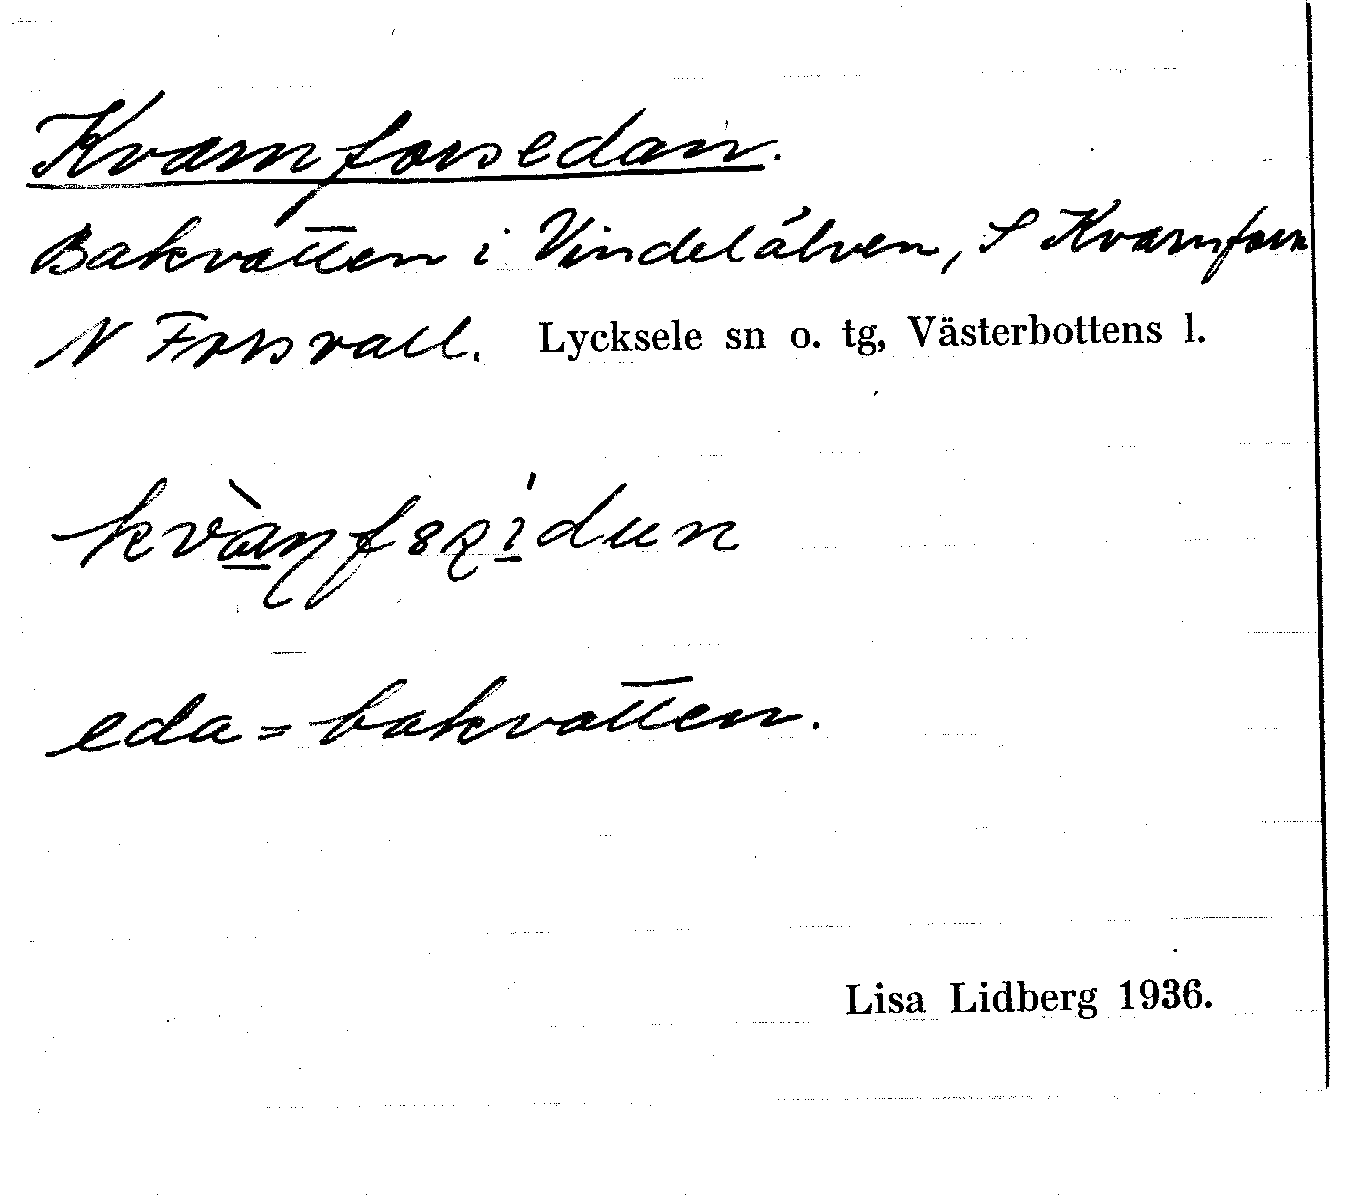 Kvarnforsedan.
Bakvatten i Vindelälven, S Kvarnfors
N Forsvall. Lycksele sn o. tg, Västerbottens l.
eda = bakvatten.
Lisa Lidberg 1936.